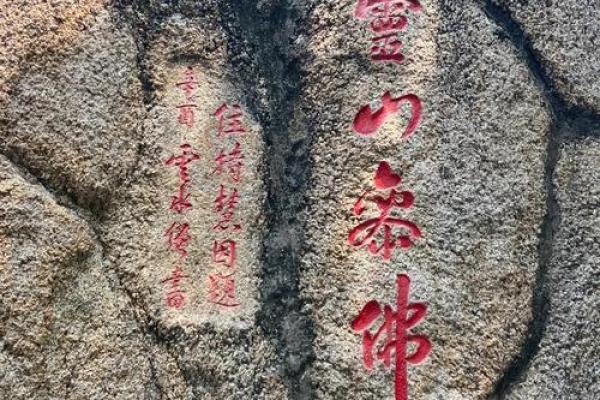 靈山參佛
住持慧因題
辛酉雲水僧書